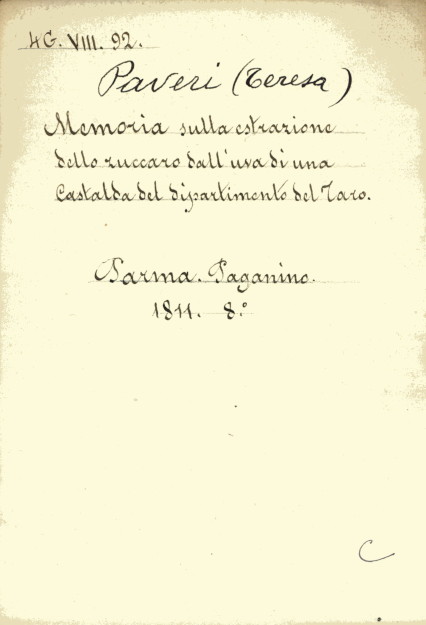 4G. VIII. 92.
Paveri (Teresa)
Memoria sulla estrazione
dello zuccaro dall'uva di una
Castalda del dipartimento del Taro.
Parma. Paganino.
1811. 8.°
C